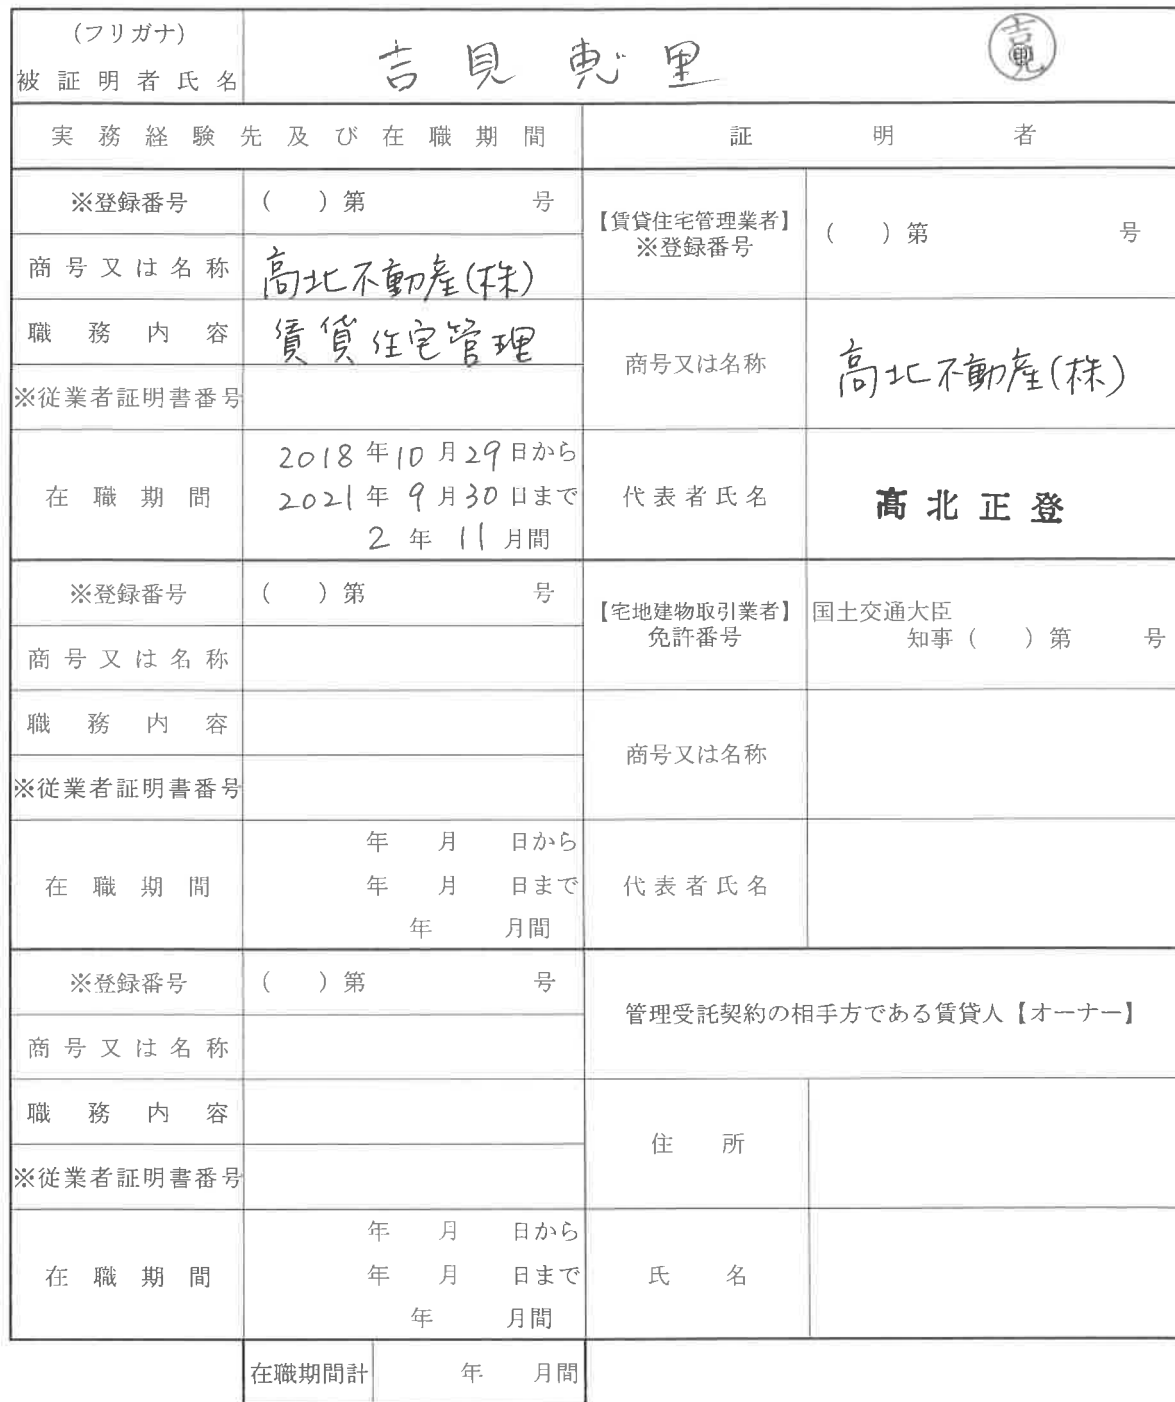 (フリガナ)
被証明者氏名 吉見恵里 吉見
実務経験先及び在職期間 証明者
※登録番号 ( )第 号
【賃貸住宅管理業者】
※登録番号 ( )第 号
商号又は名称 高北不動産(株)
職務内容 賃貸住宅管理
商号又は名称 高北不動産(株)
※従業者証明書番号
在職期間
2018年10月29日から
2021年9月30日まで
2年11月間
代表者氏名 髙北正登
※登録番号 ( )第 号
【宅地建物取引業者】
免許番号
国土交通大臣
知事( )第 号
商号又は名称
職務内容
商号又は名称
※従業者証明書番号
在職期間
年 月 日から
年 月 日まで
年 月間
代表者氏名
※登録番号 ( )第 号
管理受託契約の相手方である賃貸人【オーナー】
商号又は名称
職務内容
住所
※従業者証明書番号
在職期間
年 月 日から
年 月 日まで
年 月間
氏名
在職期間計 年 月間